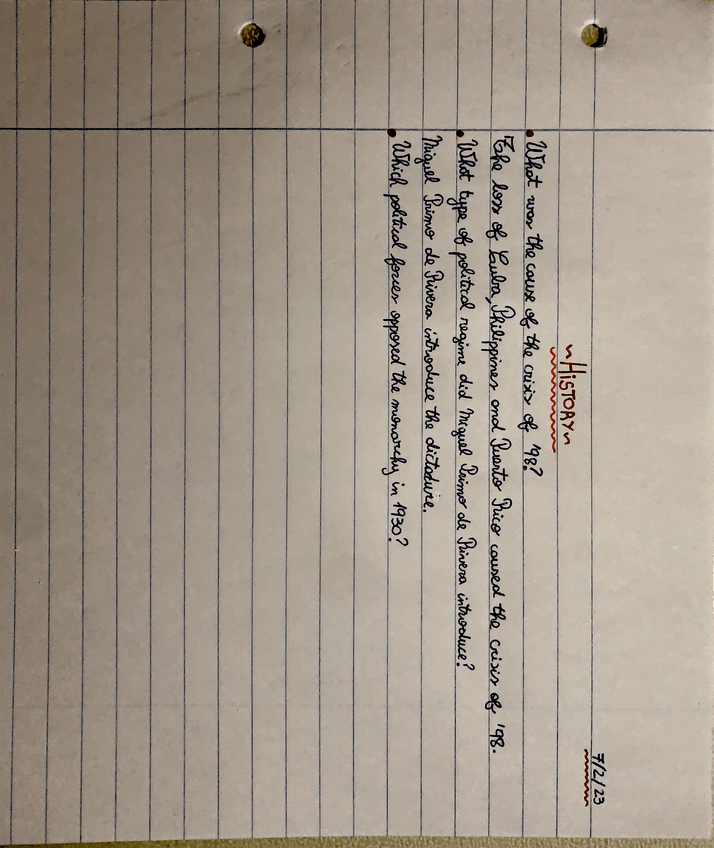 7/2/23
~HISTORY~
• What was the cause of the crisis of '98?
The loss of Cuba, Philippines and Puerto Rico caused the crisis of '98.
• What type of political regime did Miguel Primo de Rivera introduce?
Miguel Primo de Rivera introduce the dictadure.
• Which political forces opposed the monarchy in 1930?